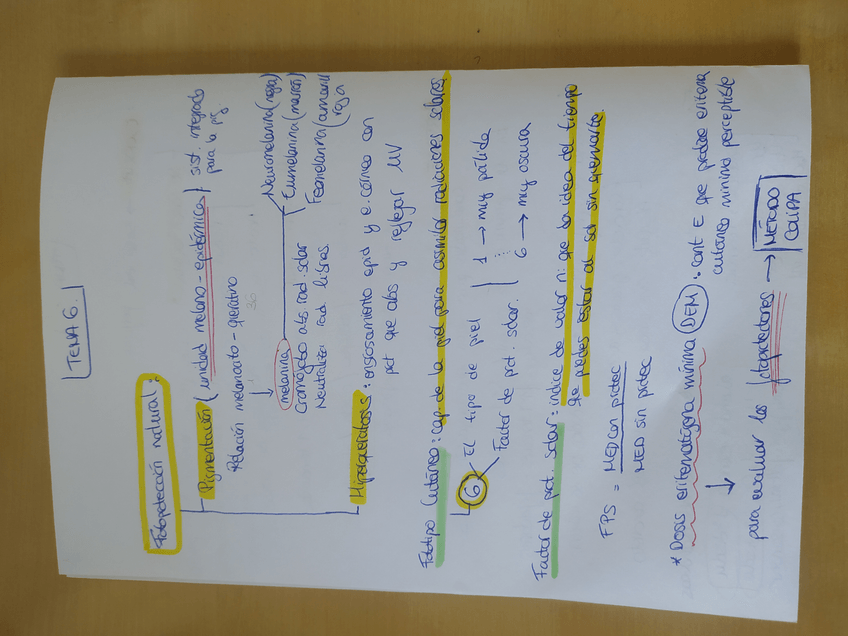 TEMA 6.
Fotoprotección natural:
Pigmentación (unidad melano-epidérmica) sist. integrado
para la prot
Relación melanocito - queratino
36
↓
melanina
Neuromelanina (negra)
Eumelanina (marrón)
Feomelanina (amarill
roja
Cromóforo abs rad. solar
Neutraliza rad libres
Hiperqueratosis: engrosamiento epid y e. córneo con
prot que abs y reflejar UV
Fototipo Cutáneo: cap. de la piel para asimilar radiaciones solares
6 El tipo de piel 1 → muy pálida
Factor de prot. solar. 6 → muy oscura
Factor de prot. solar: índice de valor nº que da idea del tiempo
que puedes estar al sol sin quemarte.
FPS = MED con protec
MED sin protec
* Dosis eritematógena mínima (DEM) · cant E que produce eritema
cutáneo mínimo perceptible
↓
para evaluar los fotoprotectores → MÉTODO
COLIPA